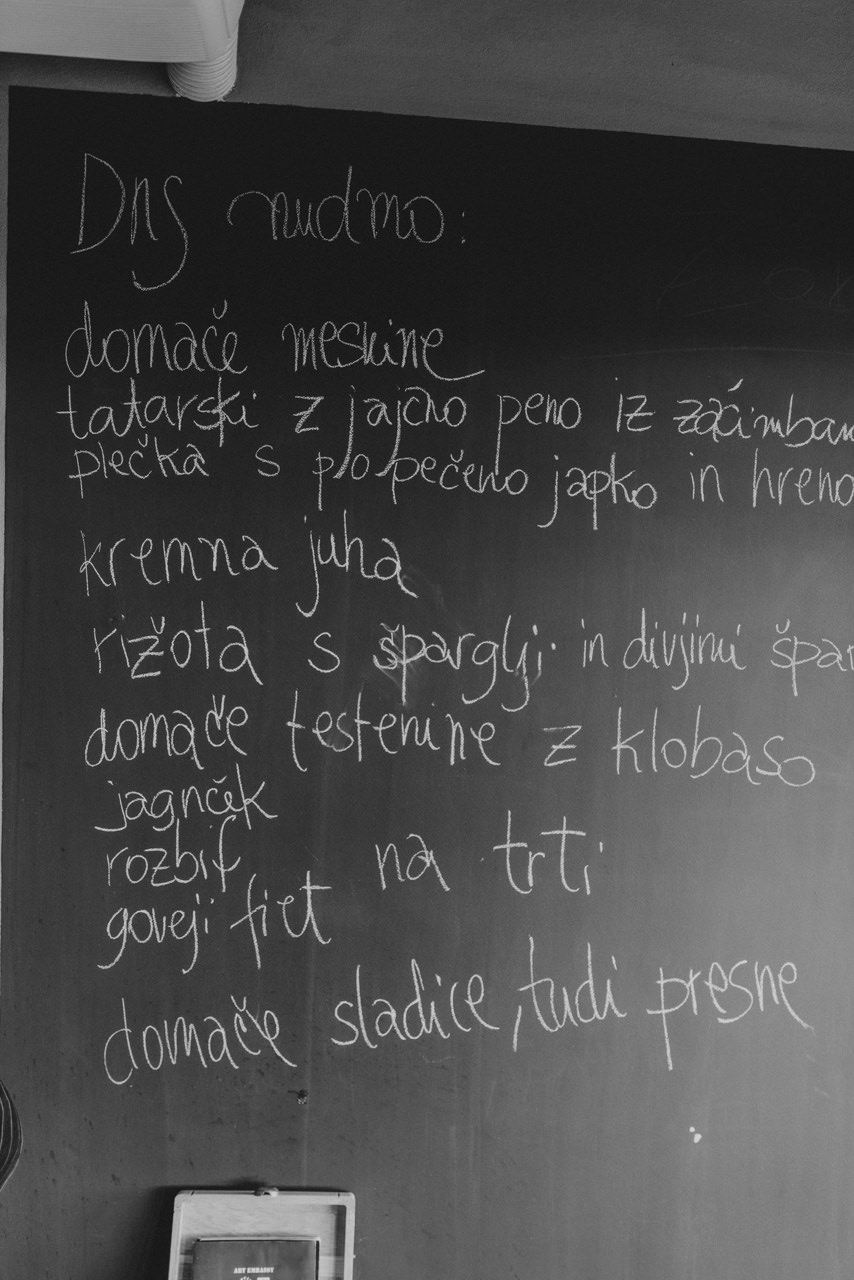 Dns nudmo:
domače mesnine
tatarski z jajčno peno iz začimbam
plečka s popečeno japko in hreno
kremna juha
rižota s šparglji in divjimi špar
domače testenine z klobaso
jagnček
rozbif na trti
goveji filet
domače sladice, tudi presne
ART EMBASSY